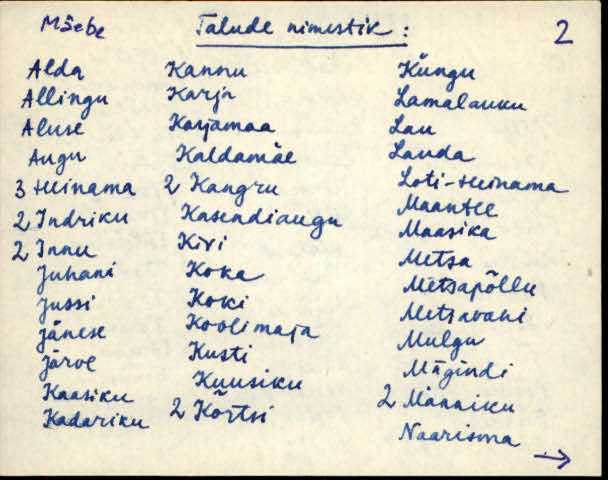 Mäebe
Talude nimestik :
2
Alda
Allingu
Aluse
Augu
3 Heinama
2 Indriku
2 Innu
Juhani
Jussi
Jänese
Järve
Kaasiku
Kadariku
Kannu
Karja
Karjamaa
Kaldamäe
2 Kangru
Kasendiaugu
Kivi
Koka
Koki
Koolimaja
Kusti
Kuusiku
2 Kõrtsi
Küngu
Lamalauku
Lau
Lauda
Loti-Heinama
Maantee
Maasika
Metsa
Metsapõllu
Metsavahi
Mulgu
Mägindi
2 Männiku
Naarisma
→